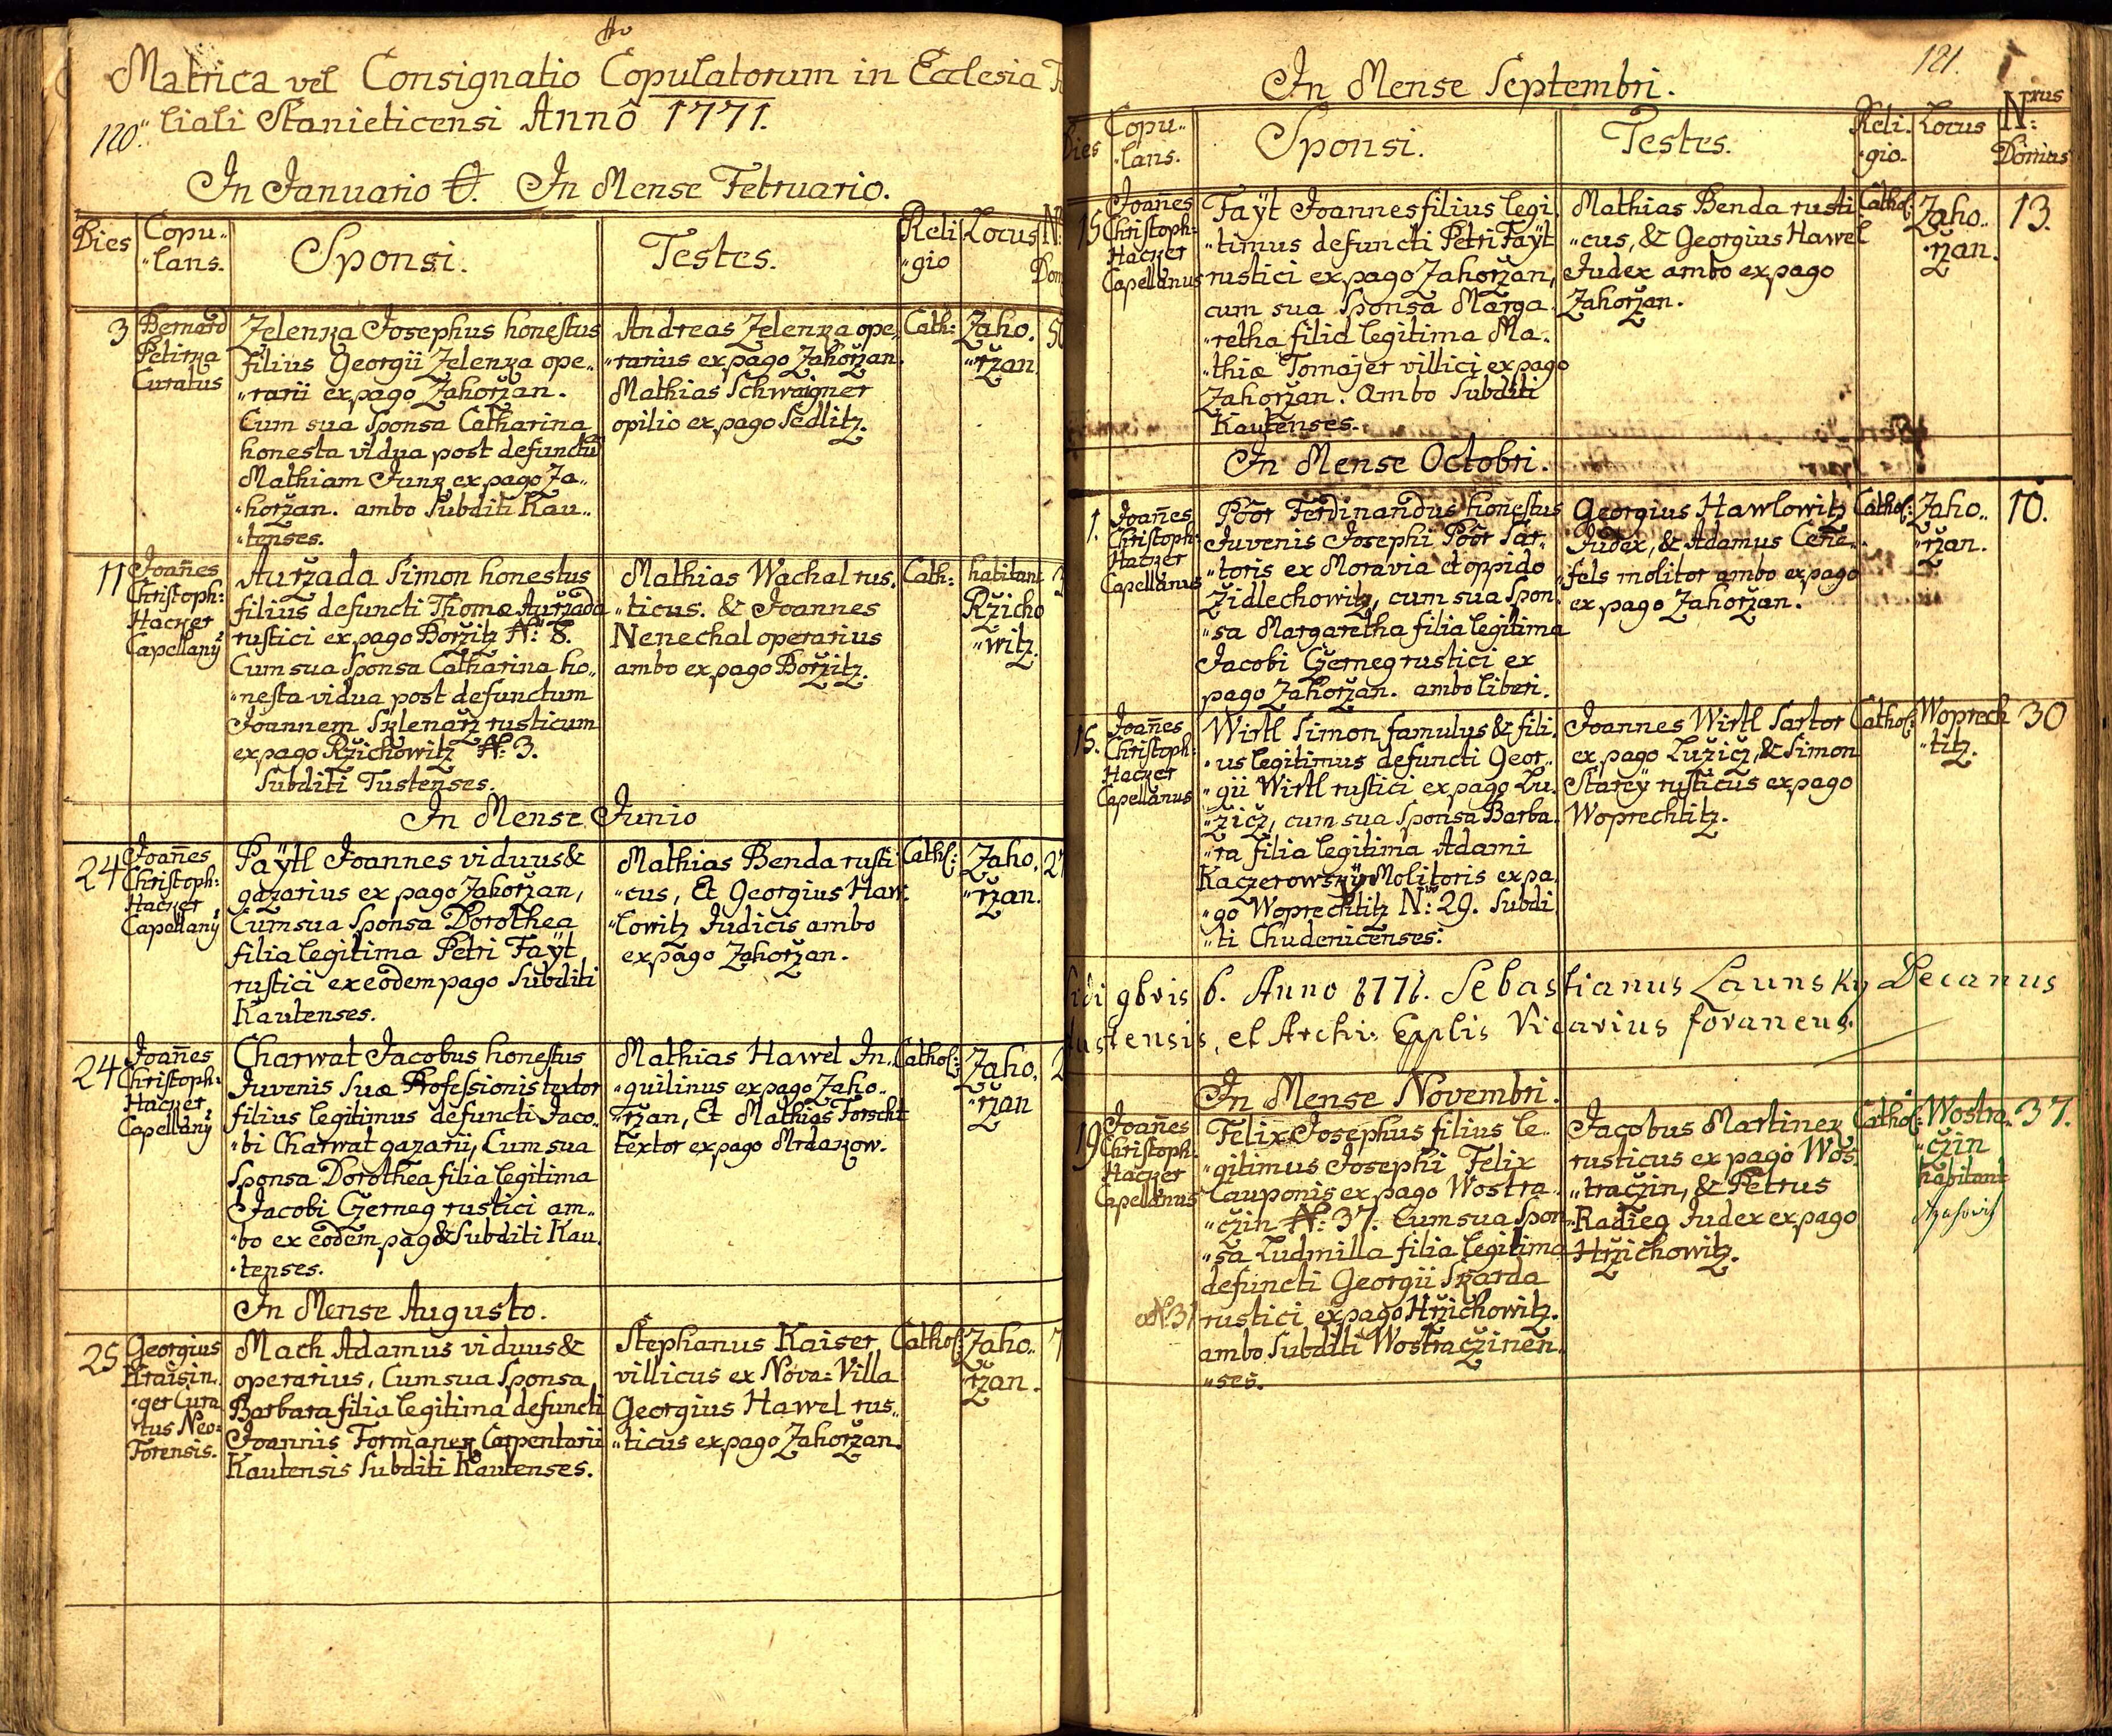 Matrica vel Consignatio Copulatorum in Ecclesia
120. liali Stanieticensi Annô 1771.
In Januario O. In Mense Februario.
Dies Copu„ „lans. Sponsi. Testes. Reli „gio Locus N:
3 Bernard Petirka Curatus
Zelenka Josephus honestus
filius Georgii Zelenka ope„
„rarii ex pago Zahoržan.
Cum sua Sponsa Catharina
honesta vidua post defunctũ
Mathiam Junk ex pago Za„
„horžan. ambo Subditi Kau„
„tenses.
Andreas Zelenka ope„
„rarius ex pago Zahoržan.
Mathias Schwaigner
opilio ex pago Sedlitz.
Cath: Zaho. „ržan.
11 Joañes Christoph: Hacker Capellanỹ
Auržada Simon honestus
filius defuncti Thomæ Auržada
rustici ex pago Boržitz N: 8.
Cum sua Sponsa Catharina ho„
„nesta vidua post defunctum
Joannem Sklenarž rusticum
ex pago Ržichowitz N: 3.
Subditi Tustenses.
Mathias Wachal rus.
„ticus. & Joannes
Nenechal operarius
ambo ex pago Boržitz.
Cath: habitant Ržicho „witz.
In Mense Junio
24 Joañes Christoph: Hacker Capellanỹ
Paÿtl Joannes viduus &
gazarius ex pago Zahoržan,
Cum sua Sponsa Dorothea
filia legitima Petri Faÿt
rustici ex eodem pago Subditi
Kautenses.
Mathias Benda rusti
„cus, Et Georgius Haw.
„lowitz Judicis ambo
ex pago Zahoržan.
Cathol: Zaho. „ržan.
24 Joañes Christoph: Hacker Capellanỹ
Charwat Jacobus honestus
Juvenis Suæ Professionis textor
filius legitimus defuncti Jaco„
„bi Charwat gazarii, Cum sua
Sponsa Dorothea filia legitima
Jacobi Czerneg rustici am„
„bo ex eodem pago & Subditi Kau.
„tenses.
Mathias Hawel In„
„quilinus ex pago Zaho„
„ržan, Et Mathias Forscht
textor ex pago Mrdakow.
Cathol: Zaho. „ržan
In Mense Augusto.
25 Georgius Kraisin„ „ger Cura „tus Neo: Forensis.
Mach Adamus viduus &
operarius, Cum sua Sponsa
Barbara filia legitima defuncti
Joannis Formanek Carpentarii
Kautensis Subditi Kautenses.
Stephanus Kaiser
villicus ex Nova: Villa
Georgius Hawel rus„
„ticus ex pago Zahoržan.
Cathol: Zaho„ „ržan.
121.
In Mense Septembri.
Dies Copu„ „lans. Sponsi. Testes. Reli. „gio. Locus Nrus: Domus
15 Joañes Christoph: Hacker Capellanus
Faÿt Joannes filius legi.
„timus defuncti Petri Faÿt
rustici ex pago Zahoržan,
cum sua Sponsa Marga.
„retha filia legitima Ma„
„thiæ Tomajer villici ex pago
Zahoržan. Ambo Subditi
Kautenses.
Mathias Benda rusti
„cus, & Georgius Hawel
Judex ambo ex pago
Zahoržan.
Cathol: Zaho„ „ržan. 13.
In Mense Octobri.
1. Joañes Christoph: Hacker Capellanus
Pöör Ferdinandus honestus
Juvenis Josephi Pöör Sar„
„toris ex Moravia et oppido
Židlechowitz, cum sua Spon.
„sa Margaretha filia legitima
Jacobi Czerneg rustici ex
pago Zahoržan. ambo liberi.
Georgius Hawlowitz
Judex, & Adamus Ceñe„
„fels molitor ambo ex pago
ex pago Zahoržan.
Cathol: Zaho„ „ržan. 10.
15. Joañes Christoph: Hacker Capellanus
Wirtl Simon famulus & fili.
„us legitimus defuncti Geor„
„gii Wirtl rustici ex pago Lu.
„žicz, cum sua Sponsa Barba.
„ra filia legitima Adami
Kaczerowskÿ Molitoris ex pa.
„go Woprechtitz N: 29. Subdi.
„ti Chudenicenses.
Joannes Wirtl Sartor
ex pago Lužicz, & Simon
Starÿ rusticus ex pago
Woprechtitz.
Cathol: Woprech „titz. 30
9bris 6. Anno 1771. Sebastianus Launsky Decanus
Tustensis, et Archi. Epplis Vicarius foraneus.
In Mense Novembri.
19 Joañes Christoph. Hacker Capellanus
Felix Josephus filius le„
„gitimus Josephi Felix
Cauponis ex pago Wostra.
„czin N: 37. Cum sua Spon„
„sa Ludmilla filia legitima
defuncti Georgii Skarda
ex N. 31 rustici ex pago Hržichowitz.
ambo Subditi Wostraczinen„
„ses.
Jacobus Martinek
rusticus ex pago Wos„
„traczin, & Petrus
Radieg Judex ex pago
Hržichowitz.
Cathol: Wostra„ „czin habitant 37.